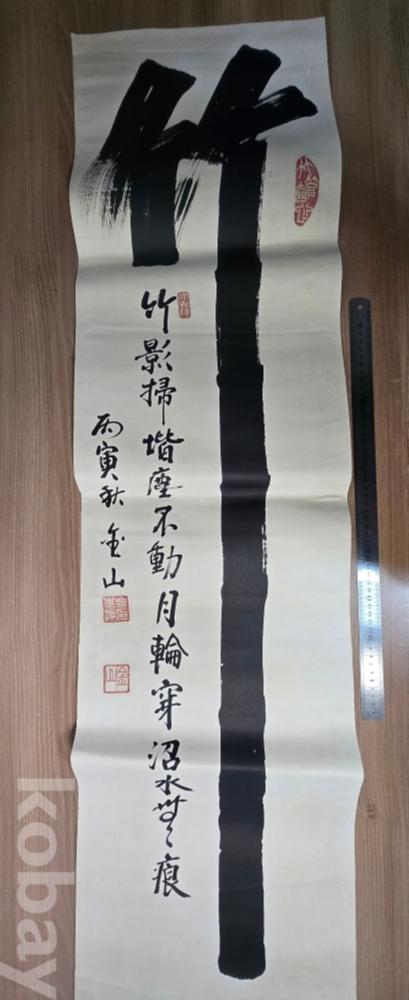 竹
竹影掃堦塵不動月輪穿沼水無痕
丙寅秋 金山
kobay